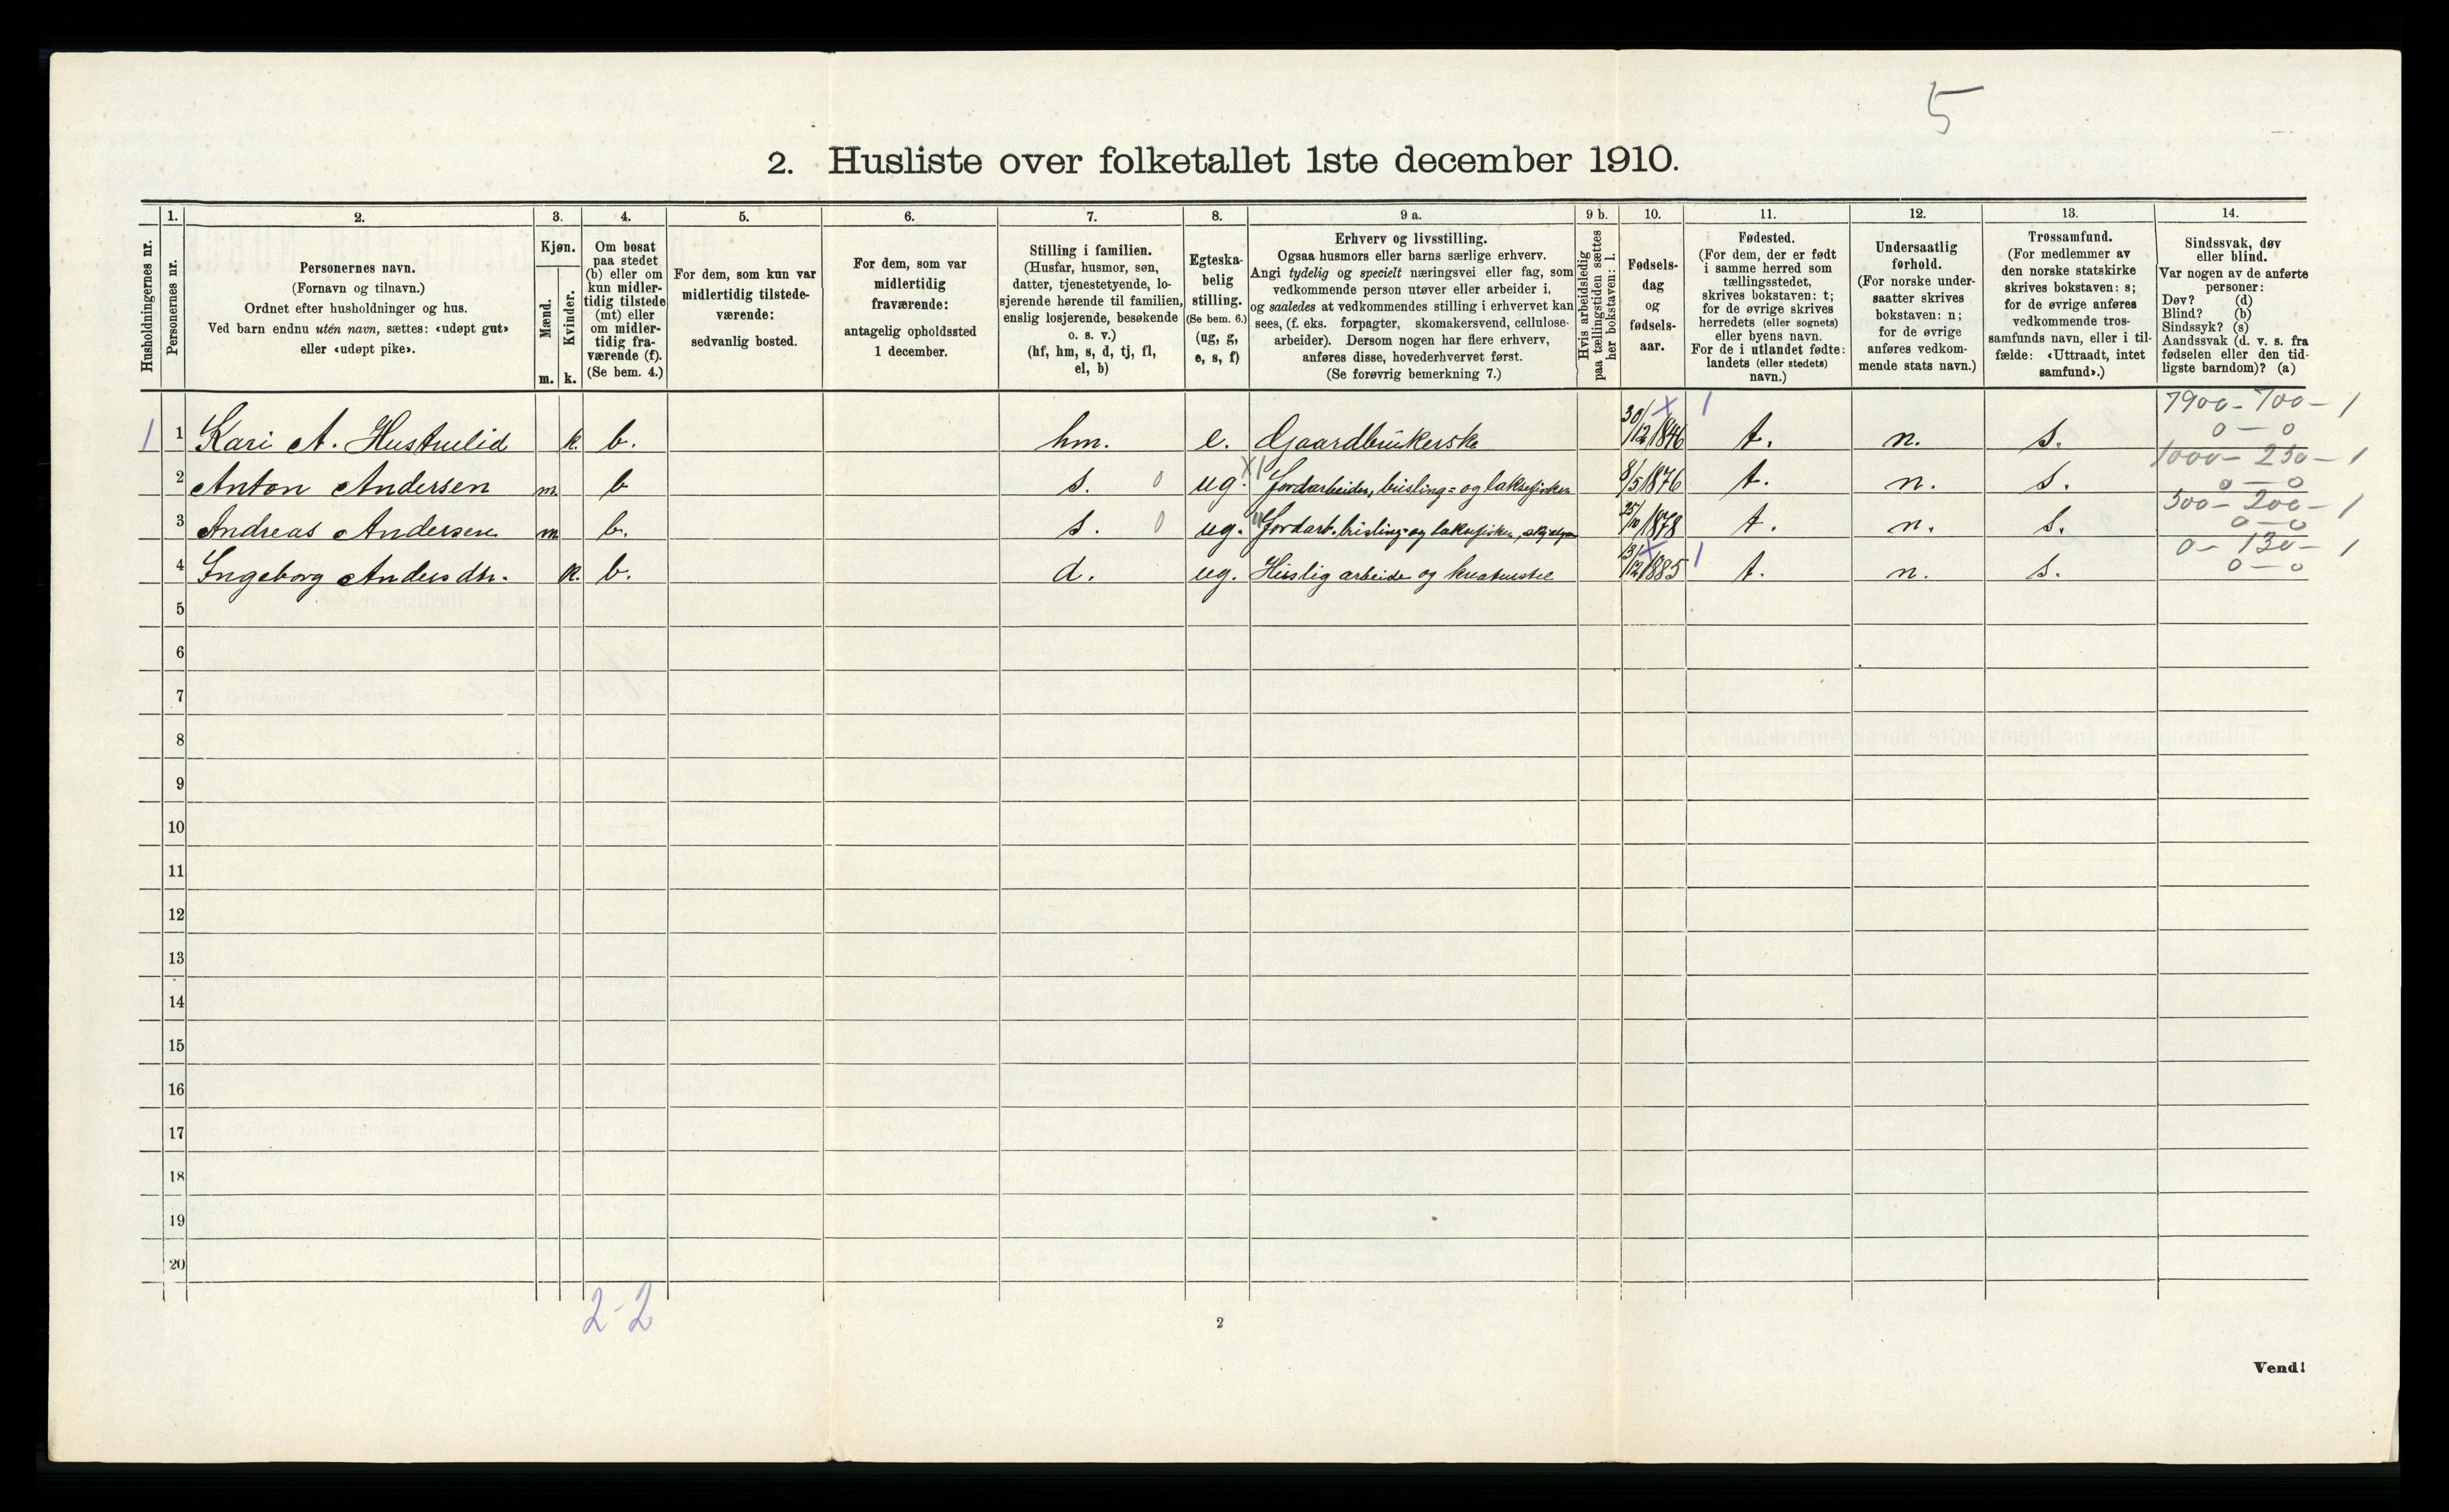 5
2. Husliste over folketallet 1ste december 1910.
Husholdningernes nr.
1.
Personernes nr.
2.
Personernes navn.
(Fornavn og tilnavn.)
Ordnet efter husholdninger og hus.
Ved barn endnu utén navn, sættes: «udøpt gut»
eller «udøpt pike».
3.
Kjøn.
Mænd.
Kvinder.
m. k.
4.
Om bosat
paa stedet
(b) eller om
kun midler-
tidig tilstede
(mt) eller
om midler-
tidig fra-
værende (f).
(Se bem. 4.)
5.
For dem, som kun var
midlertidig tilstede-
værende:
sedvanlig bosted.
6.
For dem, som var
midlertidig
fraværende:
antagelig opholdssted
1 december.
7.
Stilling i familien.
(Husfar, husmor, søn,
datter, tjenestetyende, lo-
sjerende hørende til familien,
enslig losjerende, besøkende
o. s. v.)
(hf, hm, s, d, tj, fl,
el, b)
8.
Egteska-
belig
stilling.
(Se bem. 6.)
(ug, g,
e, s, f)
9 a.
Erhverv og livsstilling.
Ogsaa husmors eller barns særlige erhverv.
Angi tydelig og specielt næringsvei eller fag, som
vedkommende person utøver eller arbeider i,
og saaledes at vedkommendes stilling i erhvervet kan
sees, (f. eks. forpagter, skomakersvend, cellulose-
arbeider). Dersom nogen har flere erhverv,
anføres disse, hovederhvervet først.
(Se forøvrig bemerkning 7.)
9 b.
Hvis arbeidsledig
paa tællingstiden sættes
her bokstaven: l.
10.
Fødsels-
dag
og
fødsels-
aar.
11.
Fødested.
(For dem, der er født
i samme herred som
tællingsstedet,
skrives bokstaven: t;
for de øvrige skrives
herredets (eller sognets)
eller byens navn.
For de i utlandet fødte:
landets (eller stedets)
navn.)
12.
Undersaatlig
forhold.
(For norske under-
saatter skrives
bokstaven: n;
for de øvrige
anføres vedkom-
mende stats navn.)
13.
Trossamfund.
(For medlemmer av
den norske statskirke
skrives bokstaven: s;
for de øvrige anføres
vedkommende tros-
samfunds navn, eller i til-
fælde: «Uttraadt, intet
samfund».)
14.
Sindssvak, døv
eller blind.
Var nogen av de anførte
personer:
Døv? (d)
Blind? (b)
Sindssyk? (s)
Aandssvak (d. v. s. fra
fødselen eller den tid-
ligste barndom)? (a)
7900 - 700 - 1
1 1 Kari A. Hustvedt k. b. hm. e. Gaardbrukerske 30/12 1846 t. n. s. 0 - 0
1000 - 250 - 1
2 Anton Andersen m. b s. 0 ug. Jordarbeider, brisling= og laksefisker 8/5 1876 t. n. s. 0 - 0
500 - 200 - 1
3 Andreas Andersen m. b. s. 0 ug. Jordarb. brisling= og laksefisker, 25/10 1878 t. n. s. 0 - 0
0 - 130 - 1
4 Ingeborg Andersdtr. k. b. d. ug. Huslig arbeide og kreaturstel 13/12 1885 t. n. s. 0 - 0
5
6
7
8
9
10
11
12
13
14
15
16
17
18
19
20
2-2
2
Vend!